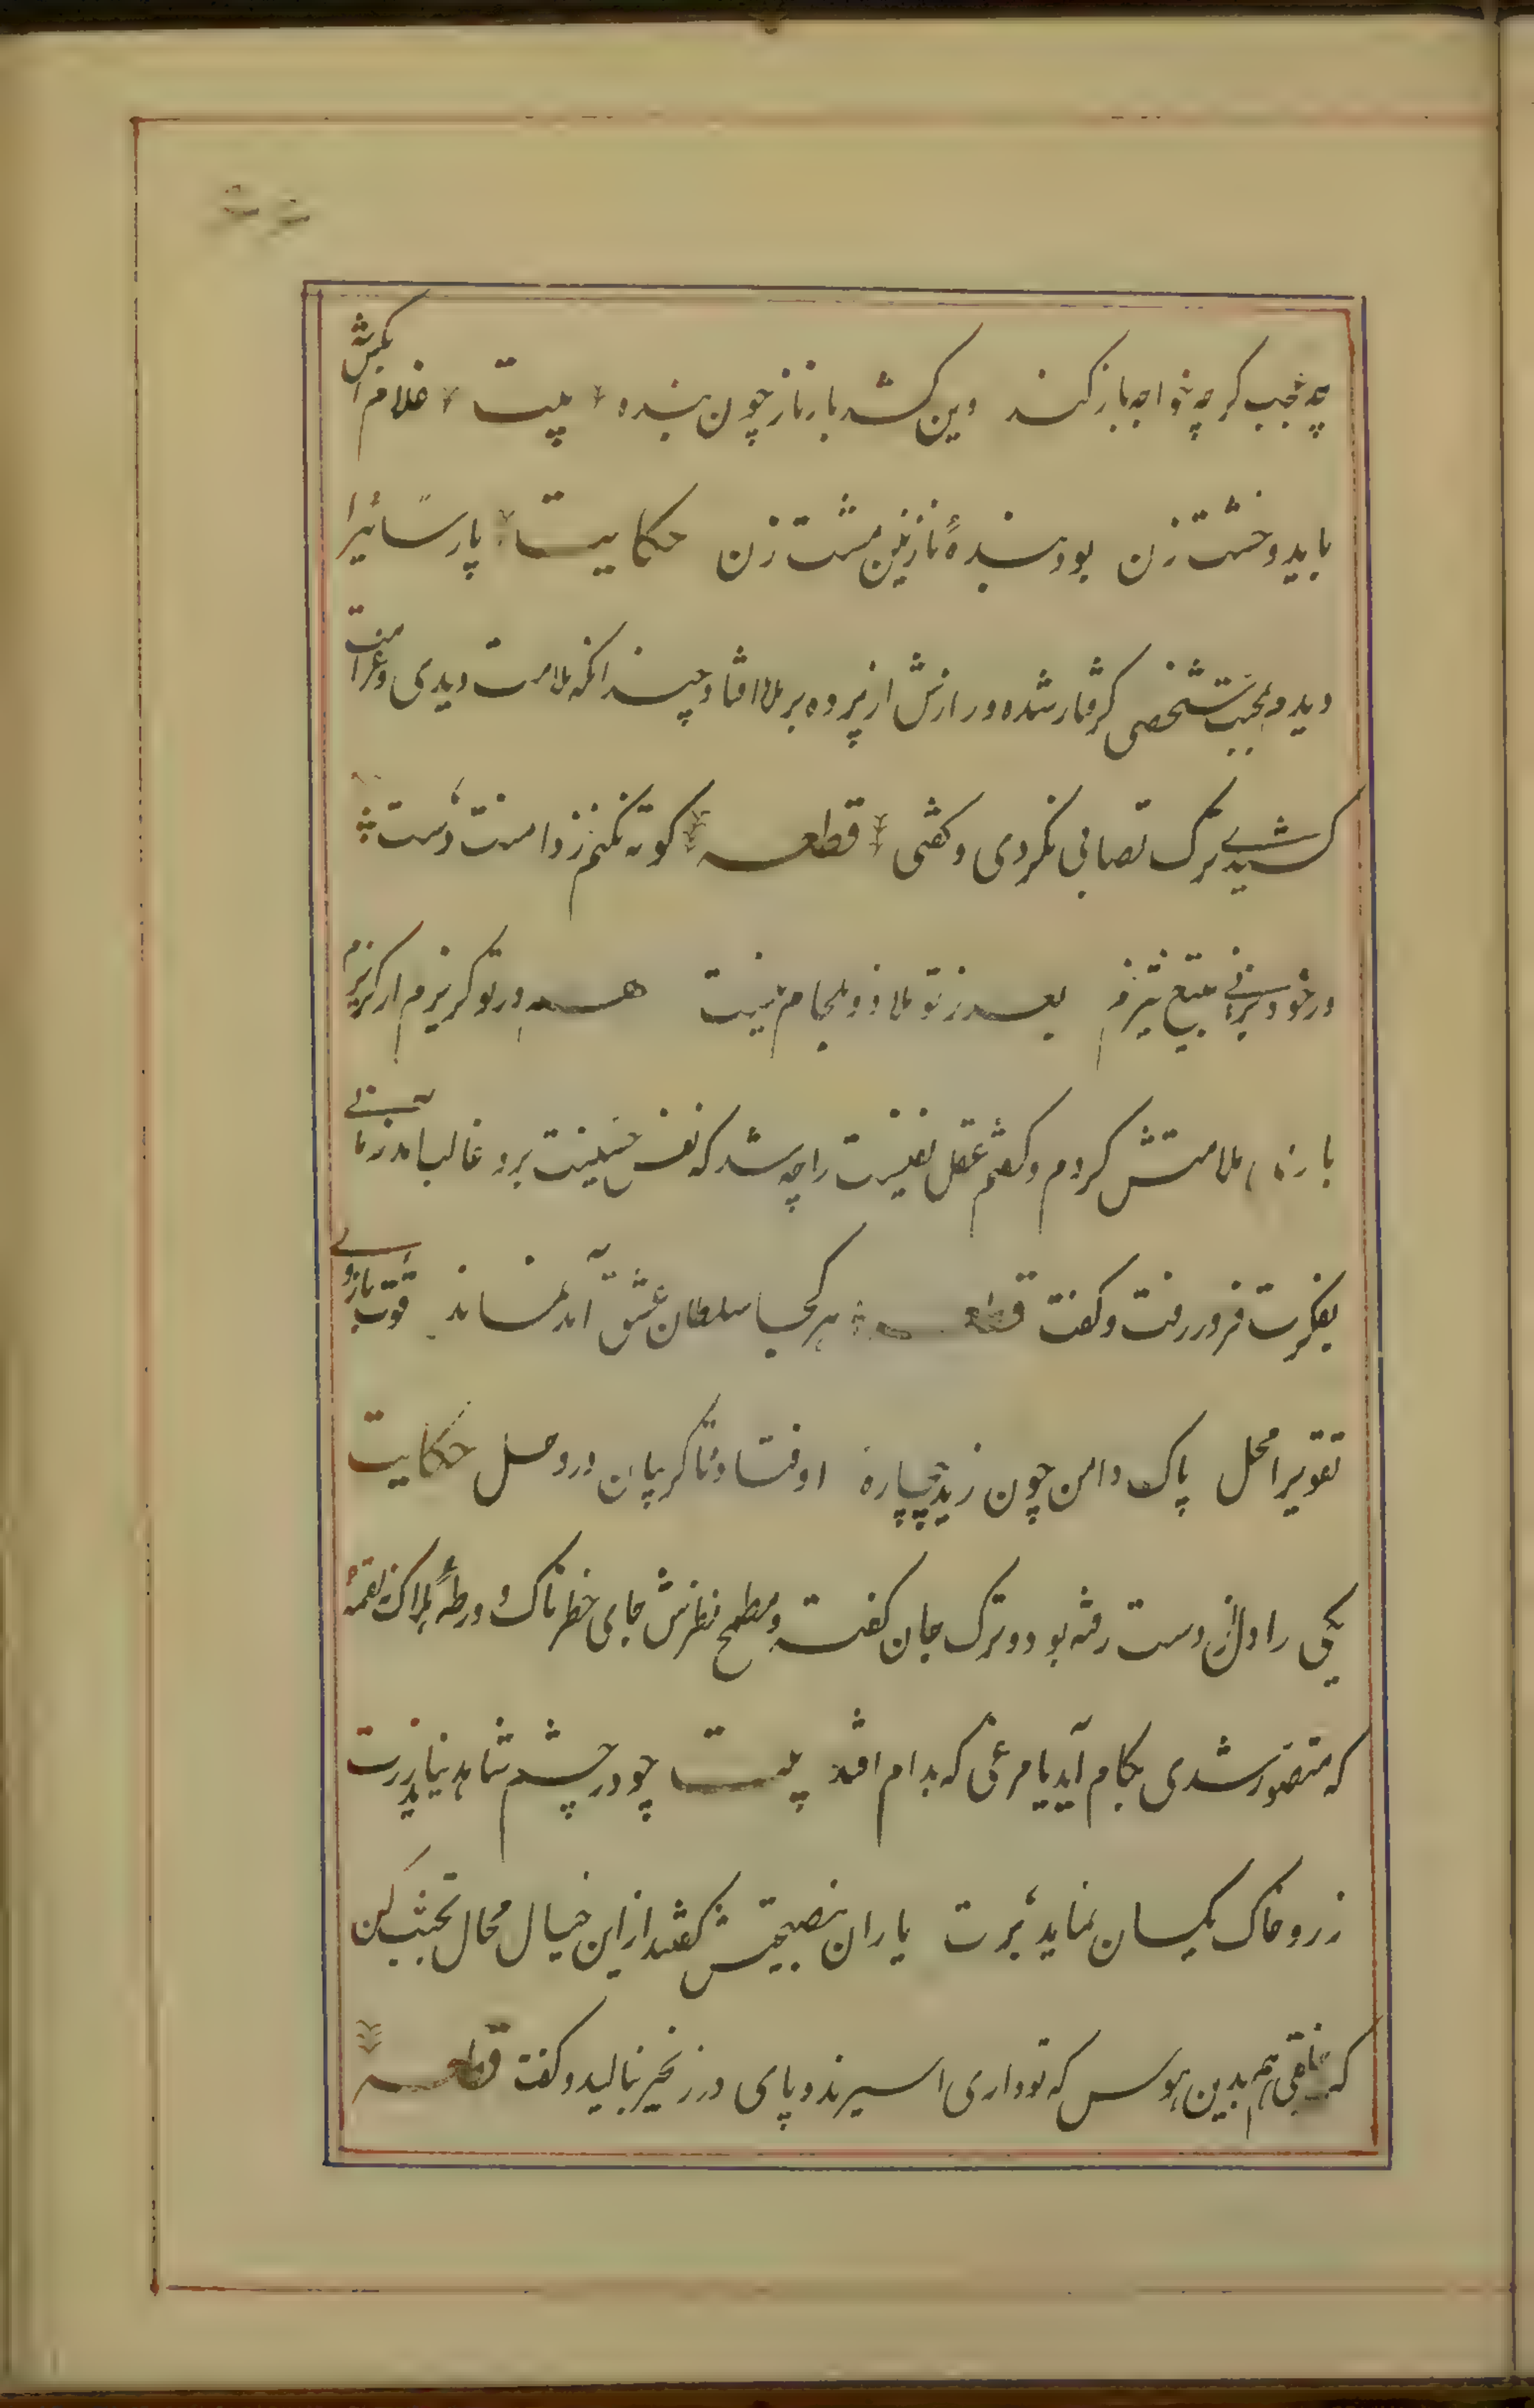 چه عجب کر چه خواجه باز کند وین کشد بار ناز چون بنده بیت غلام ابکش
باید و خشت زن بود بندهٔ نازنین مشت زن حکایت پارسائیرا
دیدم بمحبت شخصی کرفتار شده و رازش از پرده برملا افتاد چندانکه ملامت دیدی و غرامت
کشیدی ترک تصابی نکردی و کفتی قطعه کوته نکنم ز دامنت دست
ور خود بزنی بتیغ تیزم بعد از تو ملاذ و ملجام نیست هم در تو کریزم ار کریزم
باری ملامتش کردم و کفتم عقل نفیست را چه شد که نفس خسیست برد غالب آمد زمانی
بفکرت فرو رفت و کفت قطعه هر کجا سلطان عشق آمد نماند قوت بازوی
تقویرا محل پاک دامن چون زید بیچارهٔ اوفتاده تا کریبان در وحل حکایت
یکی را دل از دست رفته بود و ترک جان کفته و مطمح نظرش جای خطرناک و ورطهٔ هلاک نه لقمهٔ
که متصور شدی بکام آید یا مرغی که بدام افتد بیت چو در چشم شاهد نیاید زرت
زر و خاک یکسان نماید برت یاران بنصیحتش کفتند از این خیال محال تجنب کن
که خلقی هم بدین هوس که تو داری اسیرند و پای در زنجیر بنالید و کفت قطعه